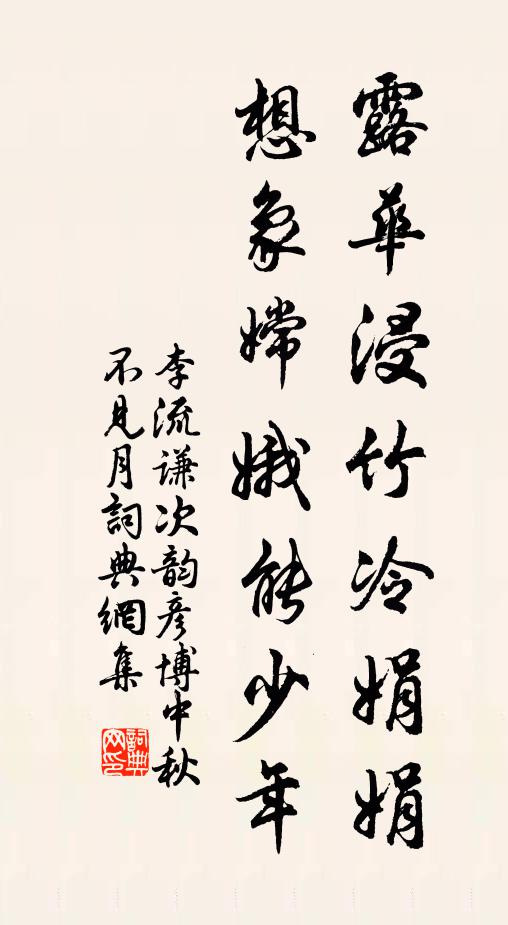 露華浸竹冷娟娟
想象嫦娥能少年
李流谦次韵彦博中秋
不見月詞典網集
詞典網印